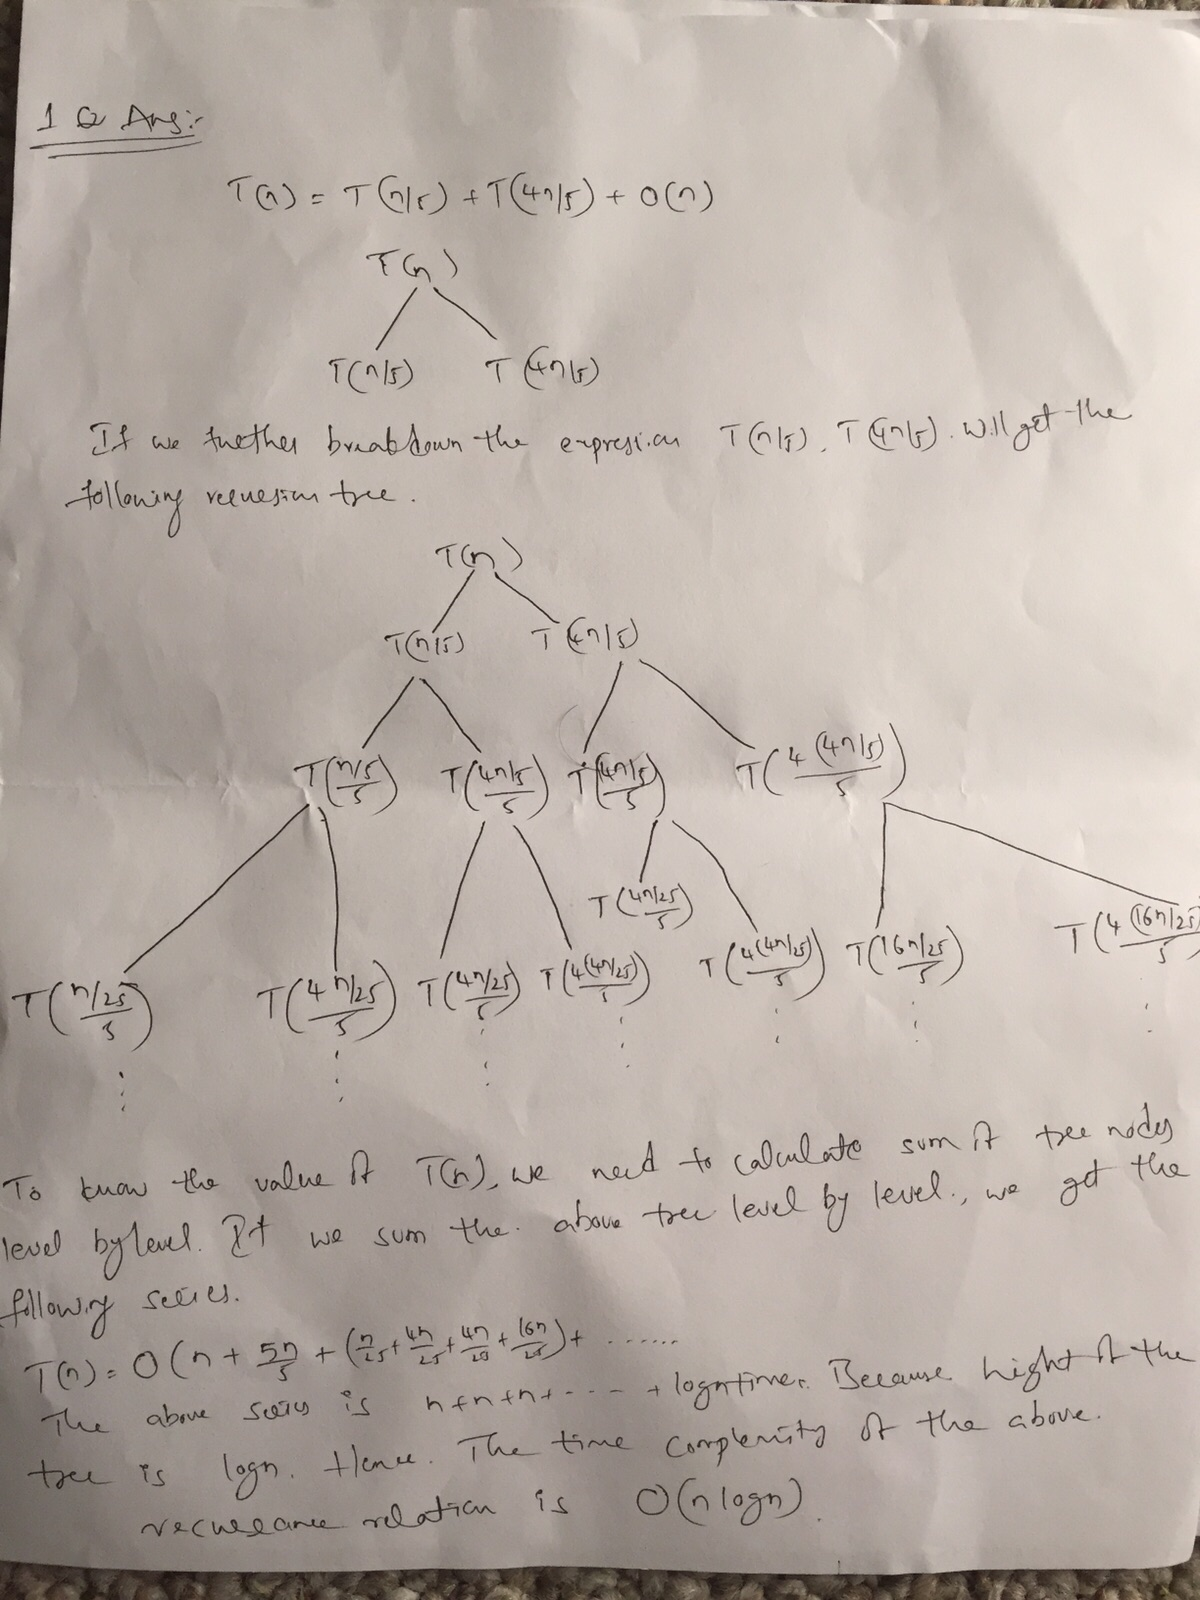 1 Q Ans:-
T(n) = T(n/5) + T(4n/5) + O(n)
T(n)
T(n/5) T(4n/5)
If we further breakdown the expression T(n/5), T(4n/5). Will get the
following recuesion tree.
T(n)
T(n/5) T(4n/5)
T((n/5)/5) T((4n/5)/5) T((4n/5)/5) T(4(4n/5)/5)
T((4n/25)/5)
T((n/25)/5) T((4n/25)/5) T((4n/25)/5) T(4(4n/25)/5) T(4(4n/25)/5) T((16n/25)/5) T(4(16n/25)/5)
To know the value of T(n), we need to calculate sum of tree nodes
level by level. If we sum the above tree level by level, we get the
following series.
T(n) = O(n + 5n/5 + (n/25 + 4n/25 + 4n/25 + 16n/25) + ......
The above series is n+n+n+---- + logn times. Because hight of the
tree is logn. Hence. The time complexity of the above.
recuesance relation is O(n logn).